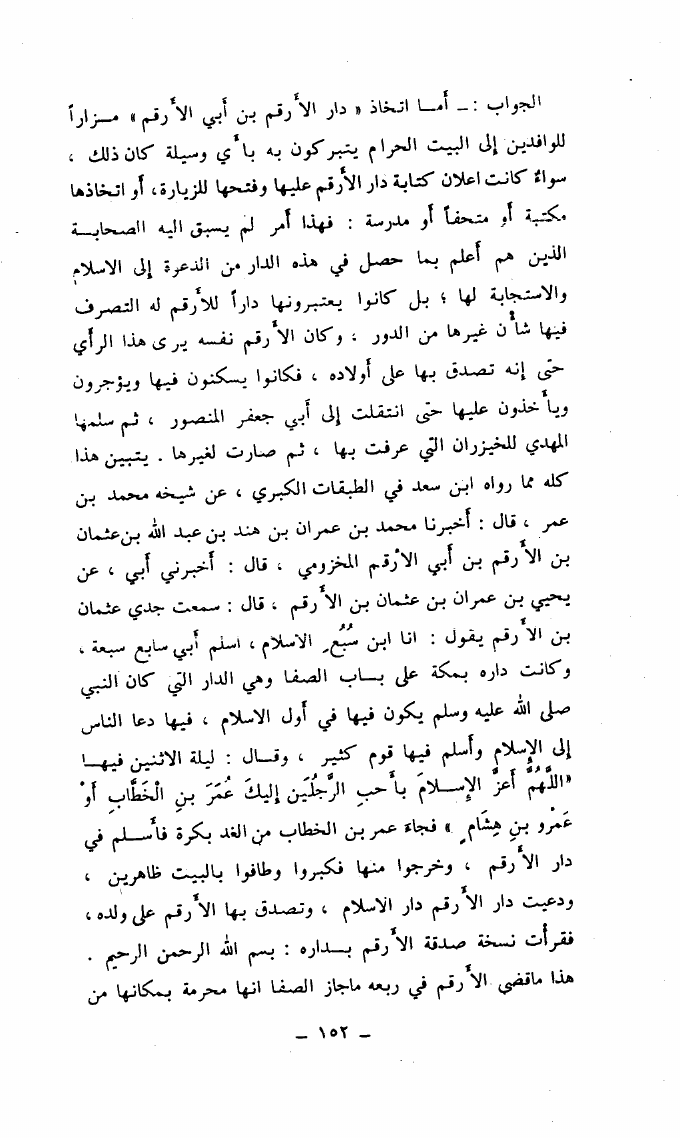 الجواب : ــ أمــا اتخاذ « دار الأرقم بن أبي الأرقم » مــزاراً
للوافدين إلى البيت الحرام يتبركون به بأي وسيلة كان ذلك ،
سواءٌ كانت اعلان كتابة دار الأرقم عليها وفتحها للزيارة، أو اتخاذها
مكتبة أو متحفاً أو مدرسة : فهذا أمر لم يسبق اليه الصحابــة
الذين هم أعلم بما حصل في هذه الدار من الدعوة إلى الاسلام
والاستجابة لها ؛ بل كانوا يعتبرونها داراً للأرقم له التصرف
فيها شأن غيرها من الدور ، وكان الأرقم نفسه يرى هذا الرأي
حتى إنه تصدق بها على أولاده ، فكانوا يسكنون فيها ويؤجرون
ويأخذون عليها حتى انتقلت إلى أبي جعفر المنصور ، ثم سلمها
المهدي للخيزران التي عرفت بها ، ثم صارت لغيرها . يتبين هذا
كله مما رواه ابن سعد في الطبقات الكبري ، عن شيخه محمد بن
عمر ، قال : أخبرنا محمد بن عمران بن هند بن عبد الله بن عثمان
بن الأرقم بن أبي الأرقم المخزومي ، قال : أخبرني أبي ، عن
يحيي بن عمران بن عثمان بن الأرقم ، قال : سمعت جدي عثمان
بن الأرقم يقول : انا ابن سُبُعِ الاسلام ، اسلم أبي سابع سبعة ،
وكانت داره بمكة على بــاب الصفا وهي الدار التي كان النبي
صلى الله عليه وسلم يكون فيها في أول الاسلام ، فيها دعا الناس
إلى الإسلام وأسلم فيها قوم كثير ، وقــال : ليلة الاثنين فيهــا
«اللَّهُمَّ أَعزَّ الإِســلامَ بأَحبِ الرَّجُلَين إِليكَ عُمَرَ بنِ الْخَطَّابِ أَوْ
عَمْرو بنِ هِشَامٍ » فجاء عمر بن الخطاب من الغد بكرة فأســلم في
دار الأرقم ، وخرجوا منها فكبروا وطافوا بالبيت ظاهرين ،
ودعيت دار الأرقم دار الاسلام ، وتصدق بها الأرقم على ولده ،
فقرأت نسخة صدقة الأرقم بــداره : بسم الله الرحمن الرحيم .
هذا ماقضي الأرقم في ربعه ماجاز الصفا انها محرمة بمكانها من
ــ ١٥٢ ــ